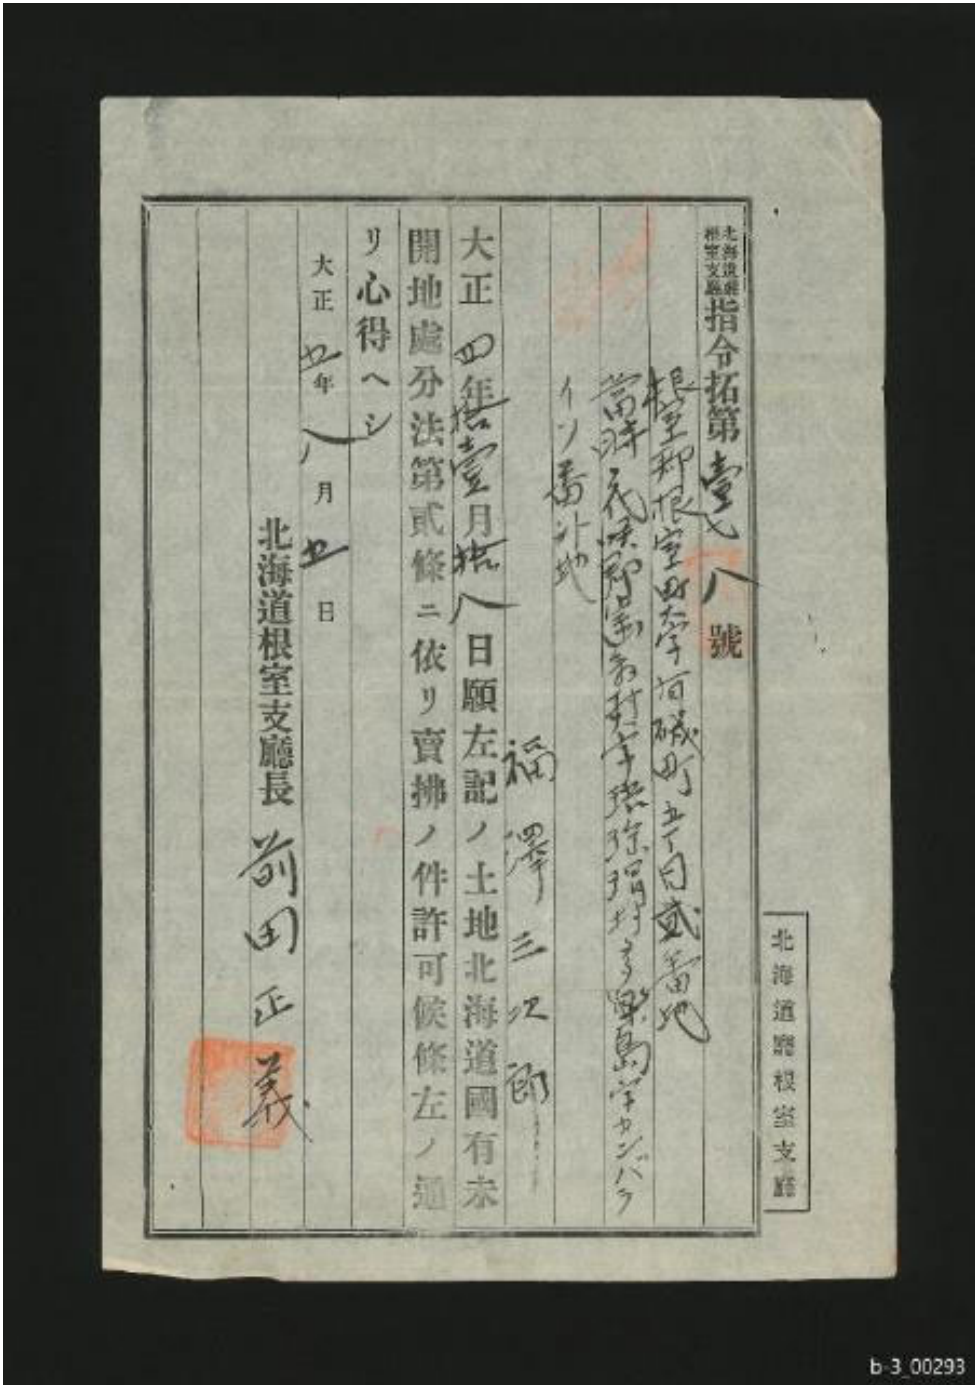 北海道廳根室支廳指令拓第壹七八號
根室郡根室町大字彌磯町五丁目貳番地
當時花咲郡歯舞村字珸瑤瑁村多樂島字カンバラ
イソ番外地
福澤三次郎
大正四年拾壹月拾八日願左記ノ土地北海道國有未
開地處分法第貳條ニ依リ賣拂ノ件許可候條左ノ通
リ心得ヘシ
大正五年八月五日
北海道根室支廳長 前田正義
北海道廳根室支廳
b-3_00293